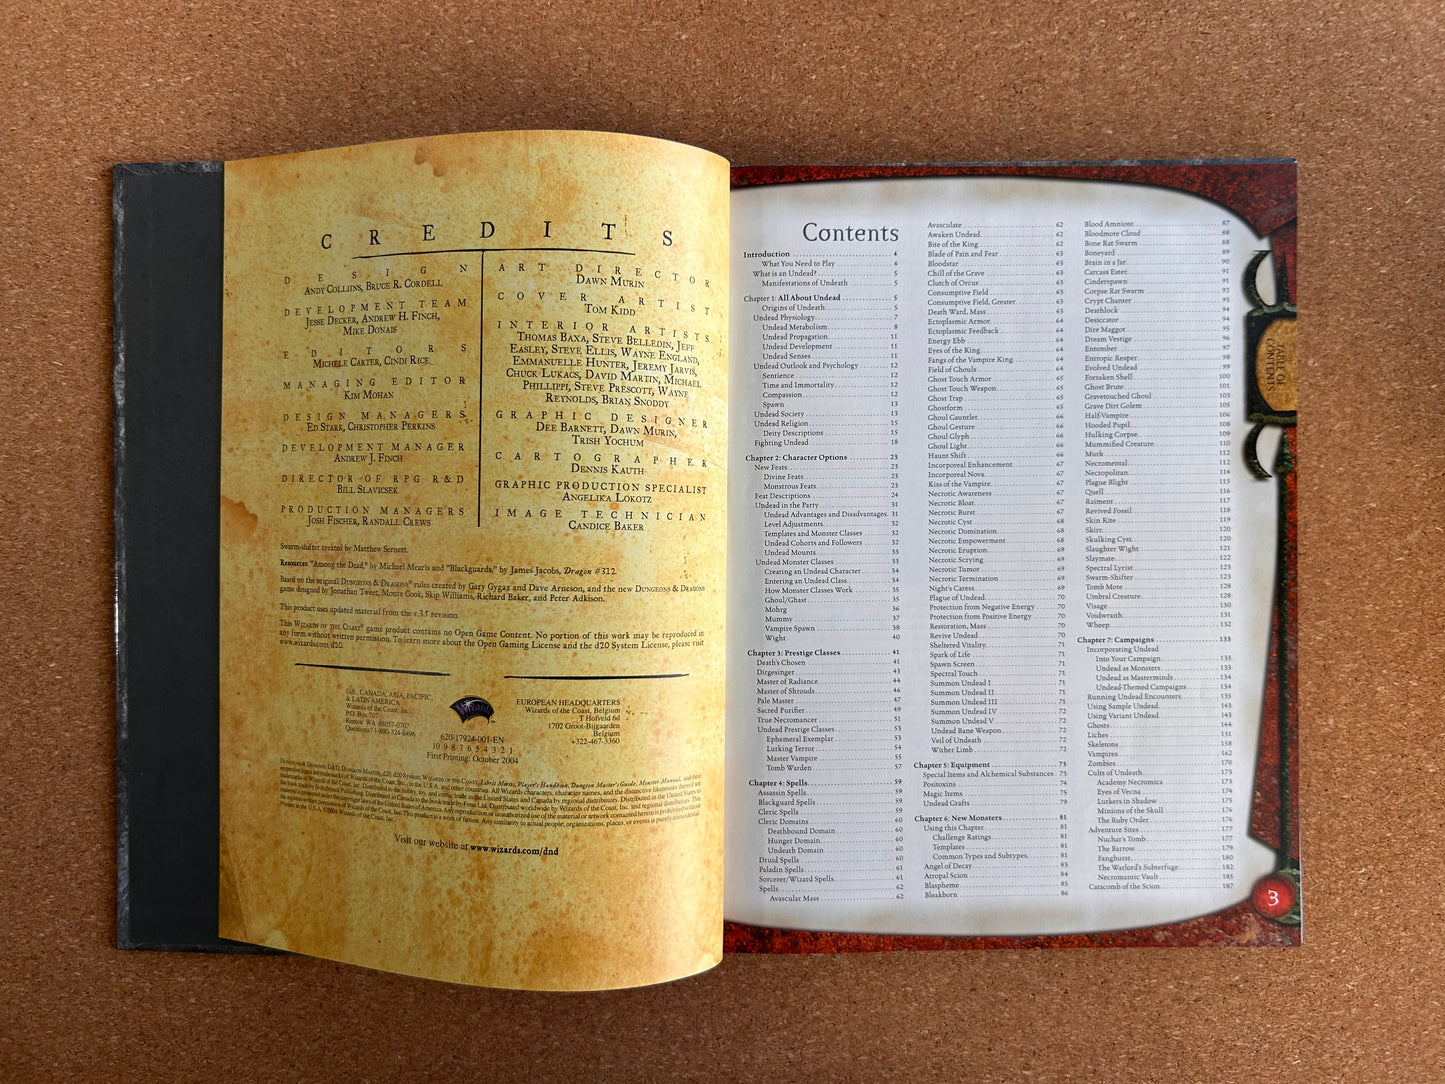 CREDITS
DESIGN
ANDY COLLINS, BRUCE R. CORDELL
DEVELOPMENT TEAM
JESSE DECKER, ANDREW H. FINCH,
MIKE DONAIS
EDITORS
MICHELE CARTER, CINDI RICE
MANAGING EDITOR
KIM MOHAN
DESIGN MANAGERS
ED STARK, CHRISTOPHER PERKINS
DEVELOPMENT MANAGER
ANDREW J. FINCH
DIRECTOR OF RPG R&D
BILL SLAVICSEK
PRODUCTION MANAGERS
JOSH FISCHER, RANDALL CREWS
ART DIRECTOR
DAWN MURIN
COVER ARTIST
TOM KIDD
INTERIOR ARTISTS
THOMAS BAXA, STEVE BELLEDIN, JEFF
EASLEY, STEVE ELLIS, WAYNE ENGLAND,
EMMANUELLE HUNTER, JEREMY JARVIS,
CHUCK LUKACS, DAVID MARTIN, MICHAEL
PHILLIPPI, STEVE PRESCOTT, WAYNE
REYNOLDS, BRIAN SNODDY
GRAPHIC DESIGNER
DEE BARNETT, DAWN MURIN,
TRISH YOCHUM
CARTOGRAPHER
DENNIS KAUTH
GRAPHIC PRODUCTION SPECIALIST
ANGELIKA LOKOTZ
IMAGE TECHNICIAN
CANDICE BAKER
Swarm-shifter created by Matthew Sernett.
Resources: "Among the Dead," by Michael Mearls and "Blackguards," by James Jacobs, Dragon #312.
Based on the original DUNGEONS & DRAGONS® rules created by Gary Gygax and Dave Arneson, and the new DUNGEONS & DRAGONS
game designed by Jonathan Tweet, Monte Cook, Skip Williams, Richard Baker, and Peter Adkison.
This product uses updated material from the v.3.5 revision.
This WIZARDS OF THE COAST® game product contains no Open Game Content. No portion of this work may be reproduced in
any form without written permission. To learn more about the Open Gaming License and the d20 System License, please visit
www.wizards.com/d20.
U.S., CANADA, ASIA, PACIFIC,
& LATIN AMERICA
Wizards of the Coast, Inc.
P.O. Box 707
Renton WA 98057-0707
Questions? 1-800-324-6496
Wizards
620-17924-001-EN
10 9 8 7 6 5 4 3 2 1
First Printing: October 2004
EUROPEAN HEADQUARTERS
Wizards of the Coast, Belgium
T Hofveld 6d
1702 Groot-Bijgaarden
Belgium
+322-467-3360
Visit our website at www.wizards.com/dnd
Contents
Introduction 4
What You Need to Play 4
What is an Undead? 5
Manifestations of Undeath 5
Chapter 1: All About Undead 5
Origins of Undeath 5
Undead Physiology 7
Undead Metabolism 8
Undead Propagation 11
Undead Development 11
Undead Senses 11
Undead Outlook and Psychology 12
Sentience 12
Time and Immortality 12
Compassion 12
Spawn 13
Undead Society 13
Undead Religion 15
Deity Descriptions 15
Fighting Undead 18
Chapter 2: Character Options 23
New Feats 23
Divine Feats 23
Monstrous Feats 23
Feat Descriptions 24
Undead in the Party 31
Undead Advantages and Disadvantages 31
Level Adjustments 32
Templates and Monster Classes 32
Undead Cohorts and Followers 32
Undead Mounts 33
Undead Monster Classes 33
Creating an Undead Character 34
Entering an Undead Class 34
How Monster Classes Work 35
Ghoul/Ghast 35
Mohrg 36
Mummy 37
Vampire Spawn 38
Wight 40
Chapter 3: Prestige Classes 41
Death's Chosen 41
Dirgesinger 43
Master of Radiance 44
Master of Shrouds 46
Pale Master 47
Sacred Purifier 49
True Necromancer 51
Undead Prestige Classes 53
Ephemeral Exemplar 53
Lurking Terror 54
Master Vampire 55
Tomb Warden 57
Chapter 4: Spells 59
Assassin Spells 59
Blackguard Spells 59
Cleric Spells 59
Cleric Domains 60
Deathbound Domain 60
Hunger Domain 60
Undeath Domain 60
Druid Spells 60
Paladin Spells 61
Sorcerer/Wizard Spells 61
Spells 62
Avascular Mass 62
Avasculate 62
Awaken Undead 62
Bite of the King 62
Blade of Pain and Fear 63
Bloodstar 63
Chill of the Grave 63
Clutch of Orcus 63
Consumptive Field 63
Consumptive Field, Greater 63
Death Ward, Mass 63
Ectoplasmic Armor 64
Ectoplasmic Feedback 64
Energy Ebb 64
Eyes of the King 64
Fangs of the Vampire King 64
Field of Ghouls 64
Ghost Touch Armor 65
Ghost Touch Weapon 65
Ghost Trap 65
Ghostform 65
Ghoul Gauntlet 66
Ghoul Gesture 66
Ghoul Glyph 66
Ghoul Light 66
Haunt Shift 66
Incorporeal Enhancement 67
Incorporeal Nova 67
Kiss of the Vampire 67
Necrotic Awareness 67
Necrotic Bloat 67
Necrotic Burst 67
Necrotic Cyst 68
Necrotic Domination 68
Necrotic Empowerment 68
Necrotic Eruption 69
Necrotic Scrying 69
Necrotic Tumor 69
Necrotic Termination 69
Night's Caress 69
Plague of Undead 70
Protection from Negative Energy 70
Protection from Positive Energy 70
Restoration, Mass 70
Revive Undead 70
Sheltered Vitality 71
Spark of Life 71
Spawn Screen 71
Spectral Touch 71
Summon Undead I 71
Summon Undead II 71
Summon Undead III 71
Summon Undead IV 72
Summon Undead V 72
Undead Bane Weapon 72
Veil of Undeath 72
Wither Limb 72
Chapter 5: Equipment 73
Special Items and Alchemical Substances 73
Positoxins 74
Magic Items 75
Undead Grafts 79
Chapter 6: New Monsters 81
Using this Chapter 81
Challenge Ratings 81
Templates 81
Common Types and Subtypes 81
Angel of Decay 83
Atropal Scion 84
Blaspheme 85
Bleakborn 86
Blood Amniote 87
Bloodmote Cloud 88
Bone Rat Swarm 88
Boneyard 89
Brain in a Jar 90
Carcass Eater 91
Cinderspawn 91
Corpse Rat Swarm 92
Crypt Chanter 93
Deathlock 94
Desiccator 94
Dire Maggot 95
Dream Vestige 96
Entomber 97
Entropic Reaper 98
Evolved Undead 99
Forsaken Shell 100
Ghost Brute 101
Gravetouched Ghoul 103
Grave Dirt Golem 105
Half-Vampire 106
Hooded Pupil 108
Hulking Corpse 109
Mummified Creature 110
Murk 112
Necromental 112
Necropolitan 114
Plague Blight 115
Quell 116
Raiment 117
Revived Fossil 118
Skin Kite 119
Skirr 120
Skulking Cyst 120
Slaughter Wight 121
Slaymate 122
Spectral Lyrist 123
Swarm-Shifter 123
Tomb Mote 128
Umbral Creature 128
Visage 130
Voidwraith 131
Wheep 132
Chapter 7: Campaigns 133
Incorporating Undead
Into Your Campaign 133
Undead as Monsters 133
Undead as Masterminds 134
Undead-Themed Campaigns 134
Running Undead Encounters 135
Using Sample Undead 135
Using Variant Undead 143
Ghosts 144
Liches 151
Skeletons 158
Vampires 162
Zombies 170
Cults of Undeath 173
Academy Necromica 173
Eyes of Vecna 174
Lurkers in Shadow 175
Minions of the Skull 176
The Ruby Order 176
Adventure Sites 177
Nuchar's Tomb 177
The Barrow 179
Fanghurst 180
The Warlord's Subterfuge 182
Necromantic Vault 185
Catacomb of the Scion 187
TABLE OF
CONTENTS
3